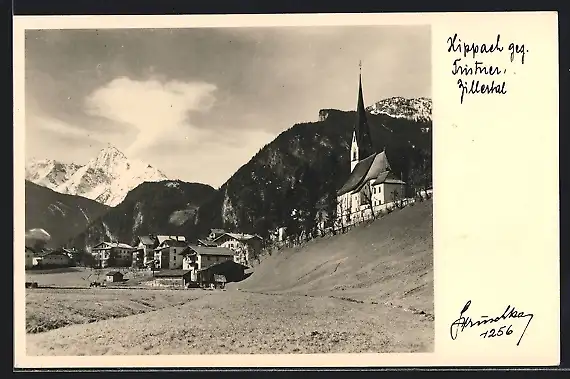 Hippach geg.
Tristner,
Zillertal
Gruschka
1256